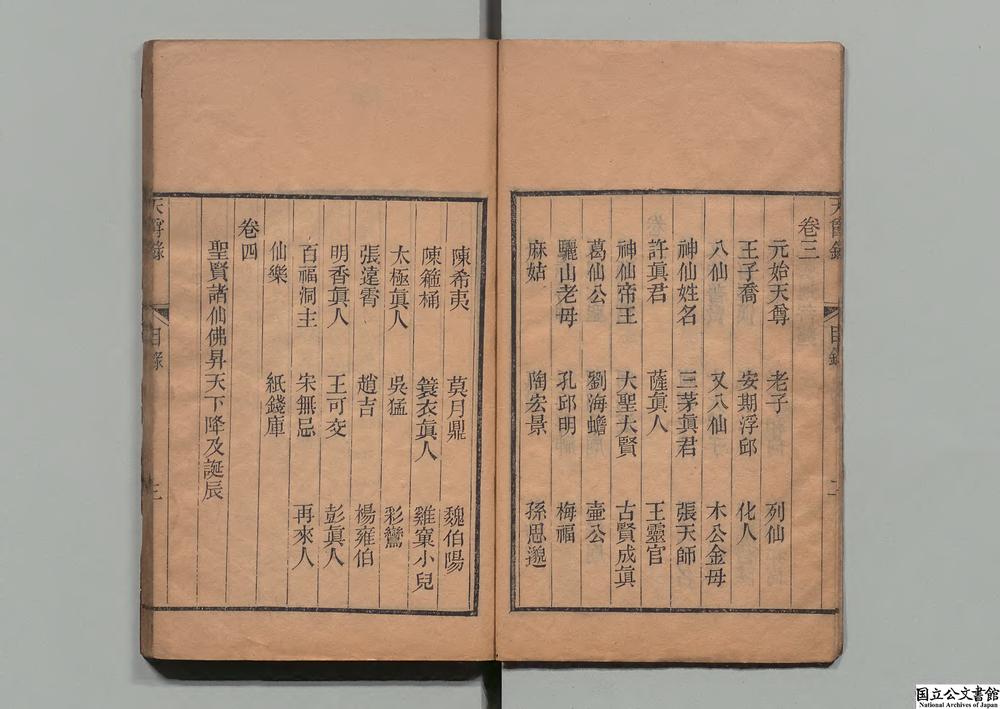 卷三
元始天尊 老子 列仙
王子喬 安期浮邱 化人
八仙 又八仙 木公金母
神仙姓名 三茅眞君 張天師
許眞君 薩眞人 王靈官
神仙帝王 大聖大賢 古賢成眞
葛仙公 劉海蟾 壺公
驪山老母 孔邱明 梅福
麻姑 陶宏景 孫思邈
目錄
二
陳希夷 莫月鼎 魏伯陽
陳箍桶 蓑衣眞人 雞窠小兒
太極眞人 吳猛 彩鸞
張遠霄 趙吉 楊雍伯
明香眞人 王可交 彭眞人
百福洞主 宋無忌 再來人
仙樂 紙錢庫
卷四
聖賢諸仙佛昇天下降及誕辰
目錄
三
国立公文書館
National Archives of Japan